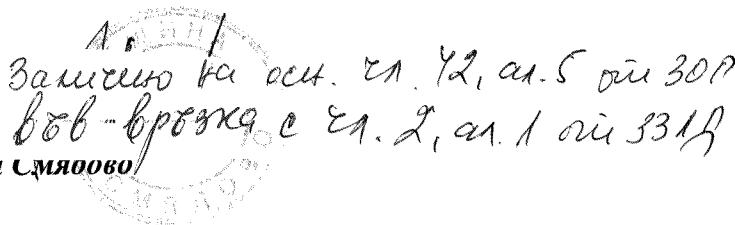 Заличено на осн. чл. 42, ал. 5 от ЗОП
във връзка с чл. 2, ал. 1 от ЗЗЛД
Смядово